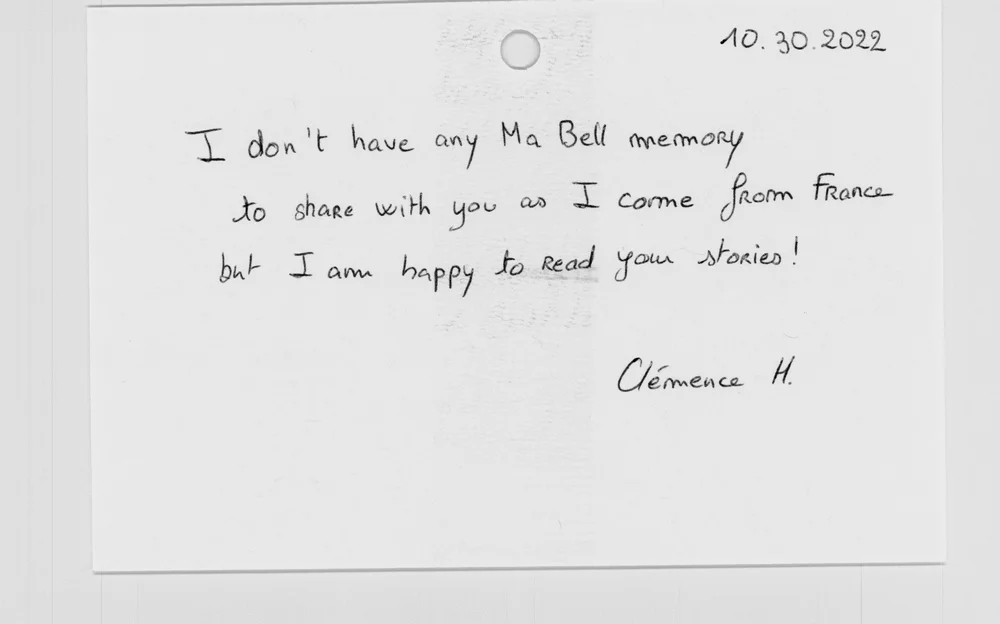 10.30.2022
I don't have any Ma Bell memory
to share with you as I come from France
but I am happy to read your stories!
Clémence H.